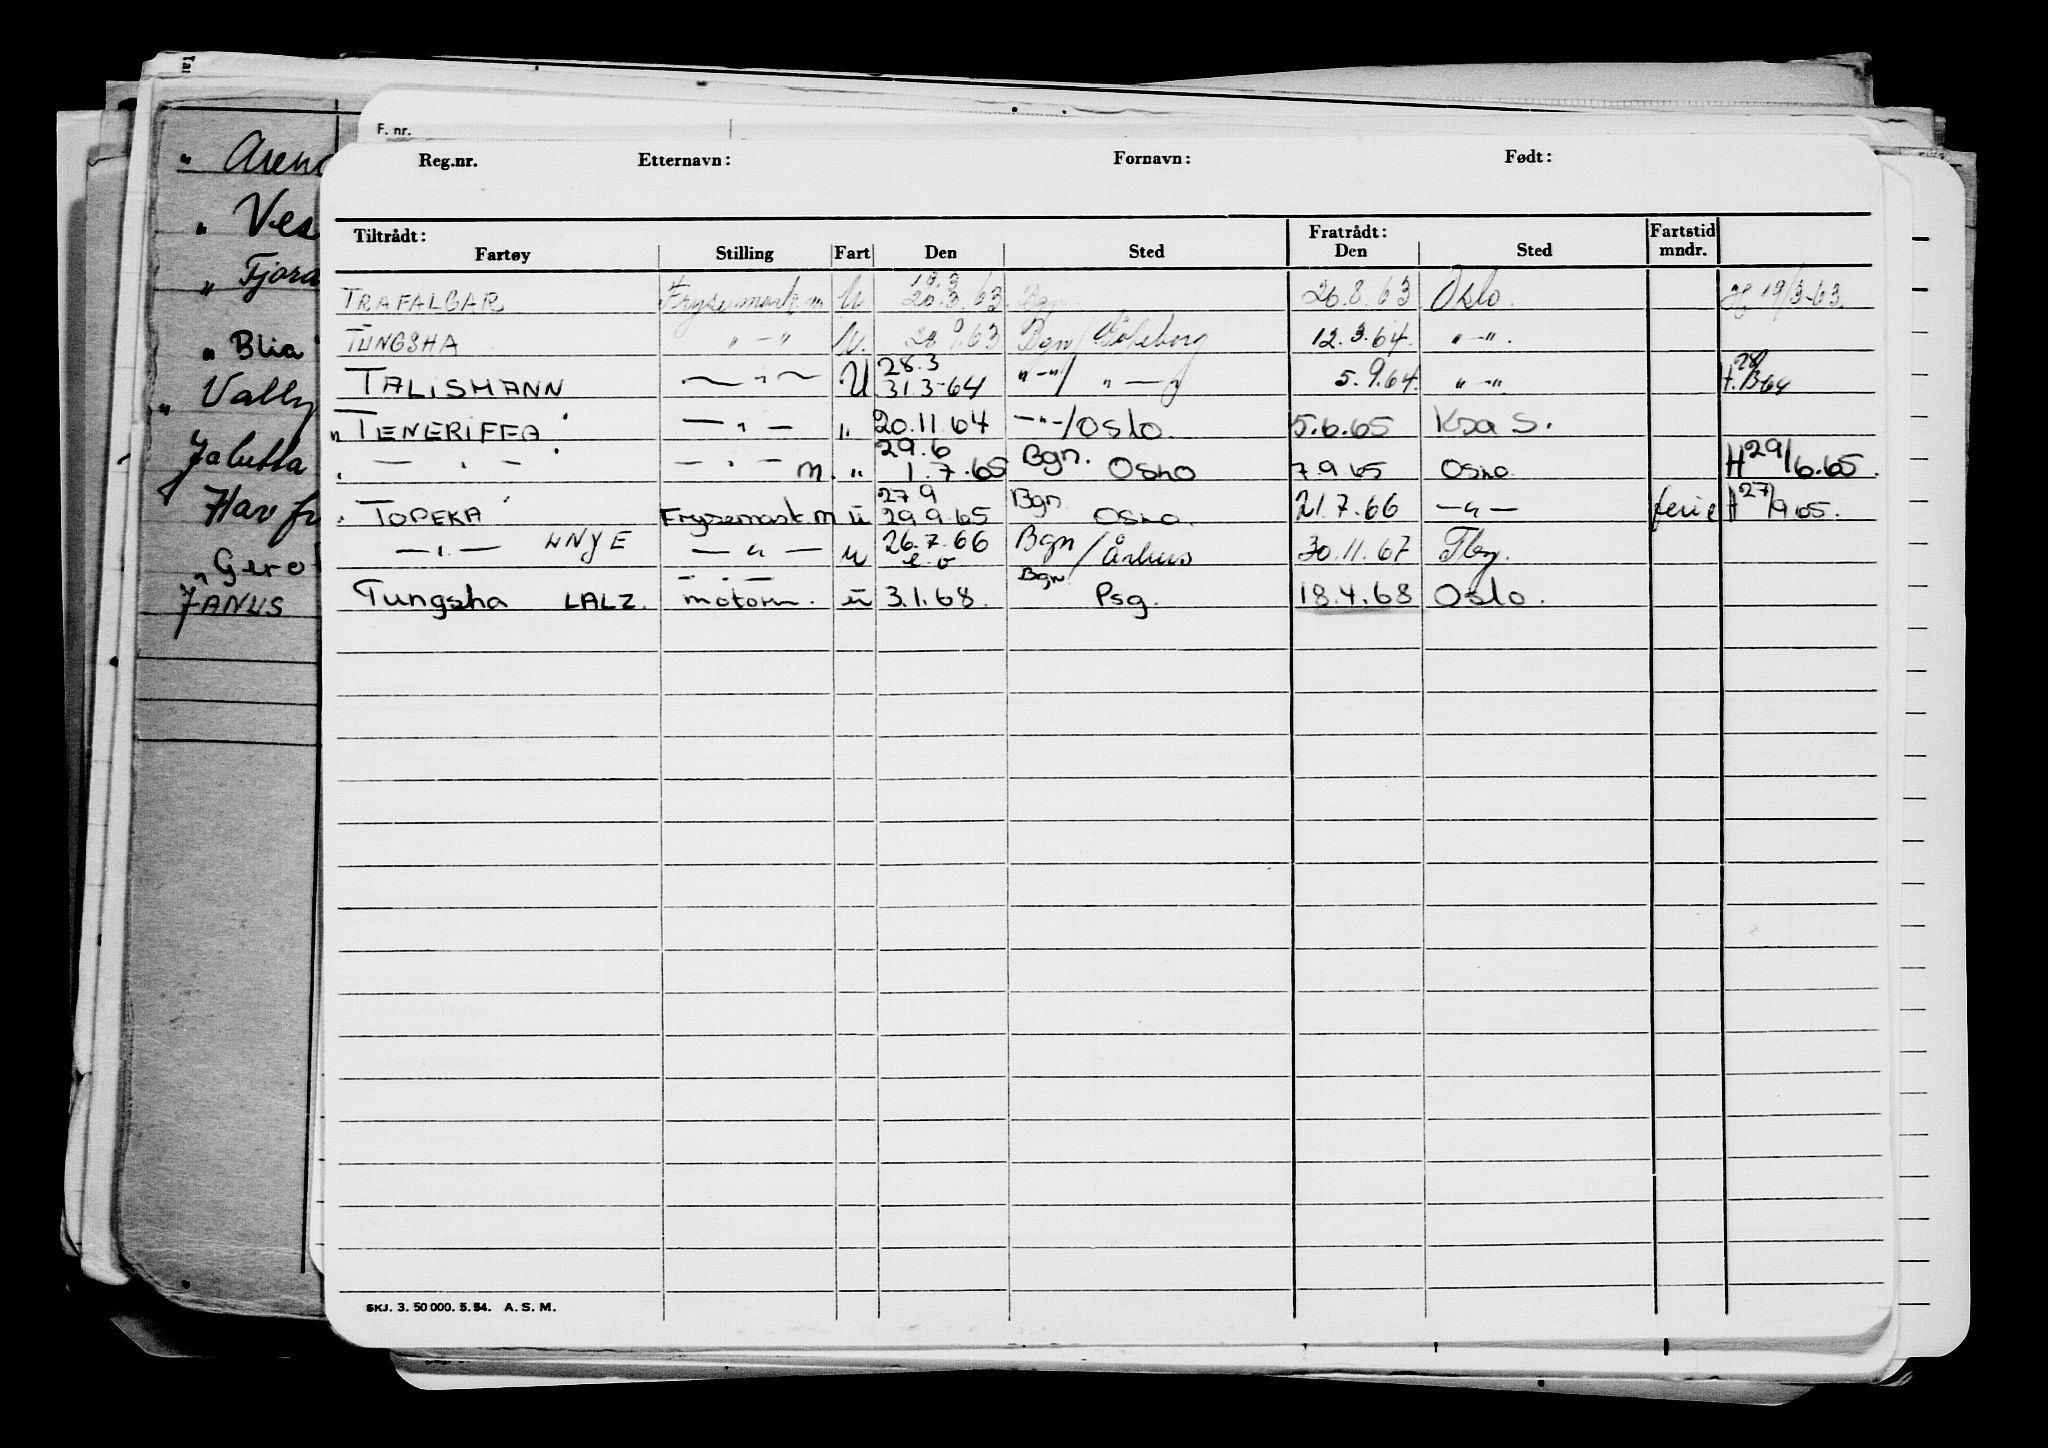 Tal
" Aren
" Ves
" Fjord
" Blia
" Vally
Jalutta
Hav fr
" Gerol
JANUS
F. nr.
Reg.nr. Etternavn: Fornavn: Født:
Tiltrådt: Fratrådt: Fartstid
Fartøy Stilling Fart Den Sted Den Sted mndr.
TRAFALGAR Frysemask. m U. 18.3 20.3.63 Bgn 26.8.63 Oslo. H 19/3-63.
TUNGSHA " - " U. 28 9.63 Bgn/Göteborg 12.3.64. " - ".
TALISMANN — " — U 28.3 31.3-64 " - "/ " — " 5.9.64. " - ".
" TENERIFFA — " — " 20.11.64 - " -/Oslo. 5.6.65 Krsa S.
" — " — — " — m. " 29.6 1.7.65 Bgn. Oslo 7.9.65 Oslo H 29/6.65.
" TOPEKA Frysemask m U 27.9 29.9.65 Bgn Oslo. 21.7.66 — " — ferie H 27/9 65.
— " — LNYE — " — U 26.7.66 e.o Bgn/Århus 30.11.67 Tbg.
Tungsha LALZ. motorm. U 3.1.68. Bgn Psg. 18.4.68 Oslo.
SKJ. 3. 50 000. 5.54. A. S. M.